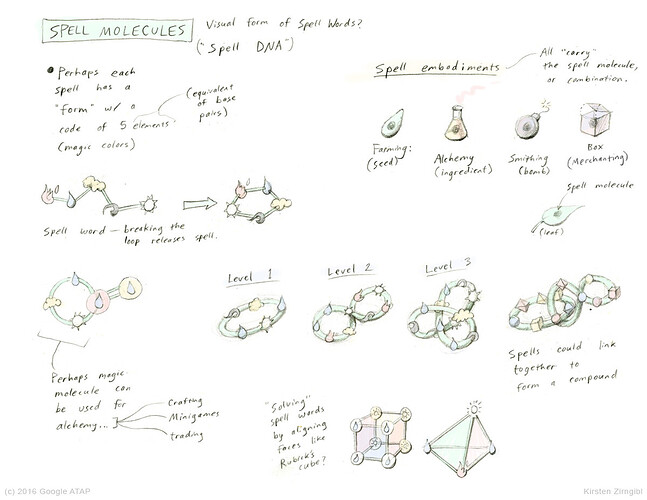 SPELL MOLECULES
Visual form of Spell Words?
("Spell DNA")
• Perhaps each
spell has a
"form" w/ a
code of 5 elements
(magic colors)
(equivalent
of base
pairs)
Spell word — breaking the
loop releases spell.
Spell embodiments
All "carry"
the spell molecule,
or combination.
Farming:
(seed)
Alchemy
(ingredient)
Smithing
(bomb)
Box
(Merchanting)
Spell molecule
(leaf)
Level 1
Level 2
Level 3
Perhaps magic
molecule can
be used for
alchemy...?
Crafting
Minigames
trading
Spells could link
together to
form a compound
"Solving"
spell words
by aligning
faces like
Rubick's
cube?
(c) 2016 Google ATAP
Kirsten Zirngibl